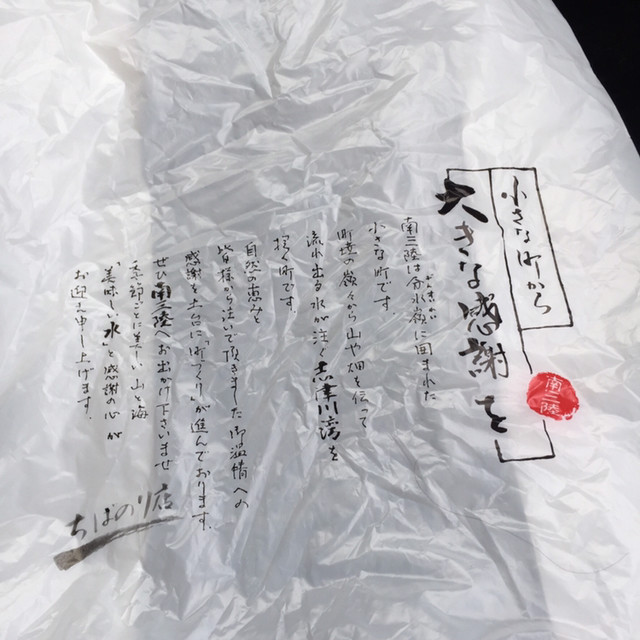 小さな町から
大きな感謝を
南三陸
南三陸は分水嶺に囲まれた
小さな町です。
町境の嶺々から山や畑を伝って
流れ出る水が注ぐ志津川湾を
抱く町です。
自然の恵みを
皆様から注いで頂きました御温情への
感謝の上に町づくりが進んでおります。
ぜひ南三陸へお出かけ下さいませ
季節ごとに美しい山と海
美味しい水と感謝の心が
お迎え申し上げます。
ちばのり店